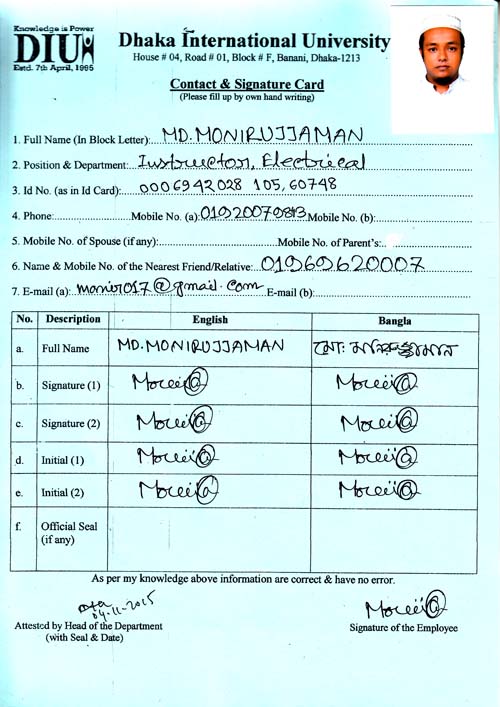 Knowledge is Power
DIU
Estd. 7th April, 1995
Dhaka International University
House # 04, Road # 01, Block # F, Banani, Dhaka-1213
Contact & Signature Card
(Please fill up by own hand writing)
1. Full Name (In Block Letter): MD. MONIRUJJAMAN
2. Position & Department: Instructor, Electrical
3. Id No. (as in Id Card): 0006942028 105, 60748
4. Phone: Mobile No. (a): 01920079813 Mobile No. (b):
5. Mobile No. of Spouse (if any): Mobile No. of Parent's:
6. Name & Mobile No. of the Nearest Friend/Relative: 01969620007
7. E-mail (a): monir017@gmail.com E-mail (b):
No. Description English Bangla
a. Full Name MD. MONIRUJJAMAN মো: মনিরুজ্জামান
b. Signature (1)
c. Signature (2)
d. Initial (1)
e. Initial (2)
f. Official Seal
(if any)
As per my knowledge above information are correct & have no error.
04-11-2015
Attested by Head of the Department
(with Seal & Date)
Signature of the Employee